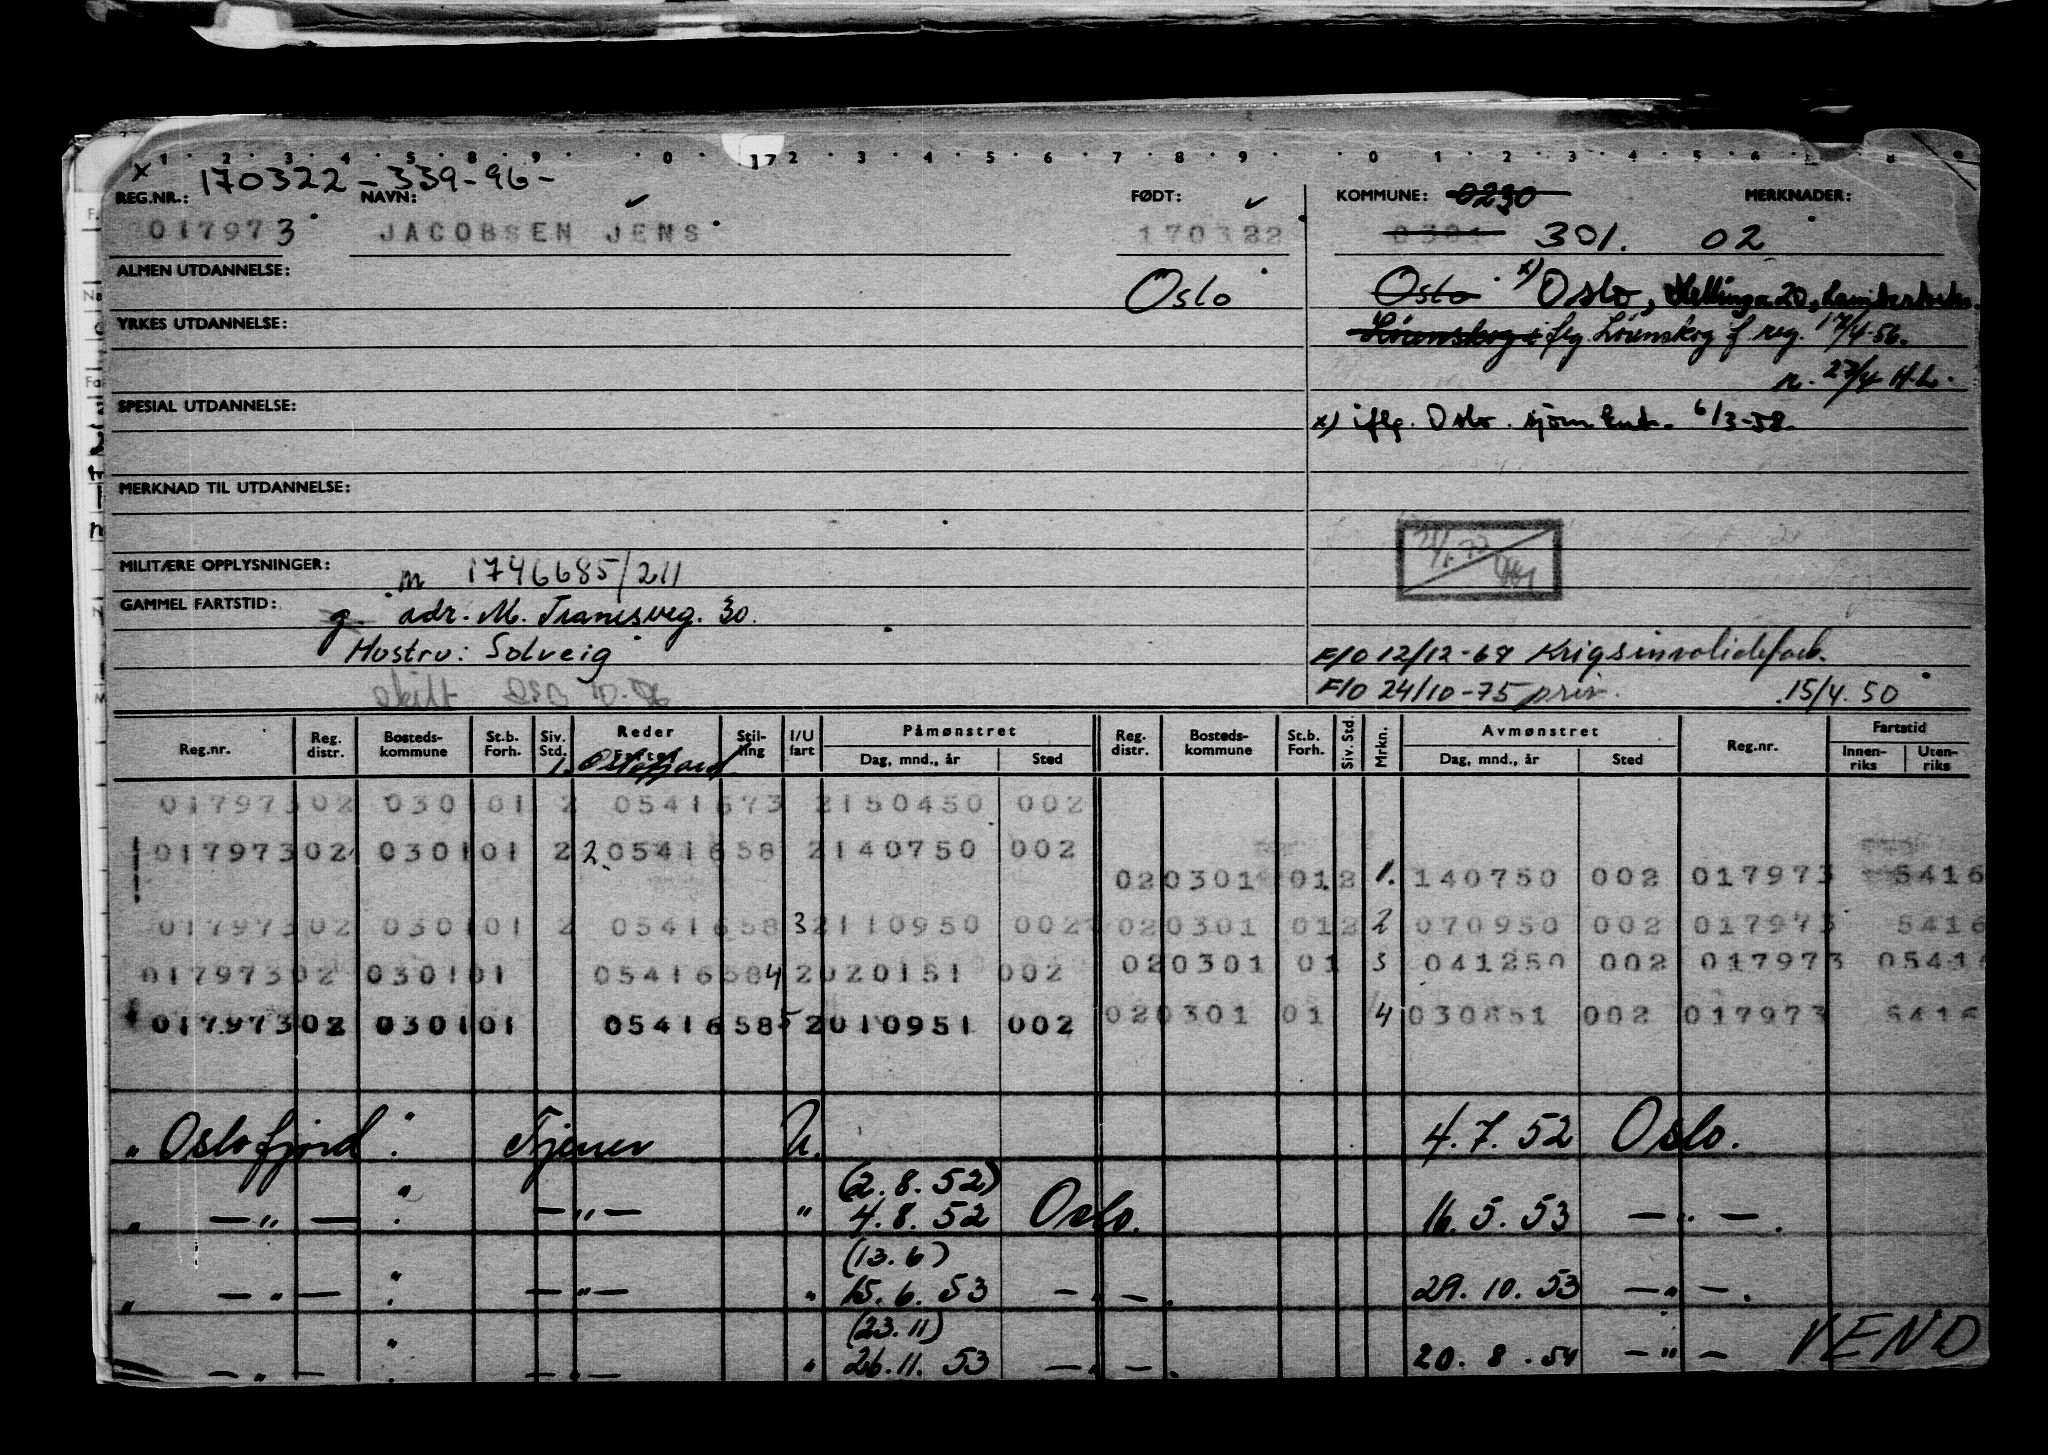 1 2 3 4 5 8 9 0 17 2 3 4 5 6 7 8 9 0 1 2 3 4 5 6 8
x 170322-339-96-
REG.NR.: NAVN: FØDT: KOMMUNE: 0230 MERKNADER:
017973 JACOBSEN JENS 170322 0301 301. 02
ALMEN UTDANNELSE: Oslo Oslo x) Oslo, 20,
YRKES UTDANNELSE: Lørenskog iflg. Lørenskog f. reg. 17/4-56.
n. 27/4 H.L.
SPESIAL UTDANNELSE: x) iflg. Oslo sjøm.knt. 6/3-58.
MERKNAD TIL UTDANNELSE:
MILITÆRE OPPLYSNINGER: m 1746685/211
GAMMEL FARTSTID: g. adr. M. Tranesveg. 30.
Hustru: Solveig F/O 12/12-68 Krigsinvalideforb.
gift F/O 24/10-75 priv. 15/4.50
Reg.nr. Reg. distr. Bosteds-kommune St.b. Forh. Siv. Std. Reder Stil-ling I/U fart Påmønstret Dag, mnd., år Sted Reg. distr. Bosteds-kommune St.b. Forh. Siv. Std. Mrkn. Avmønstret Dag, mnd., år Sted Reg.nr. Fartstid Innen-riks Uten-riks
1. Oslofjord
017973 02 0301 01 2 0541673 2 150450 002
017973 02 0301 01 2 2. 0541658 2 140750 002
02 0301 01 2 1. 140750 002 017973 5416
017973 02 0301 01 2 0541658 3 2 110950 002 02 0301 01 2 2 070950 002 017973 5416
017973 02 0301 01 0541658 4 2 020151 002 02 0301 01 3 041250 002 017973 05416
017973 02 0301 01 0541658 5 2 010951 002 02 0301 01 4 030851 002 017973 5416
" Oslofjord : Tjener U. 4.7.52 Oslo.
(2.8.52)
" —"— : —"— " 4.8.52 Oslo. 16.5.53 —"—.
(13.6)
" —"— : —"— " 15.6.53 —"—. 29.10.53 —"—.
(23.11)
" —"— : —"— " 26.11.53 —"—. 20.8.54 —"— VEND